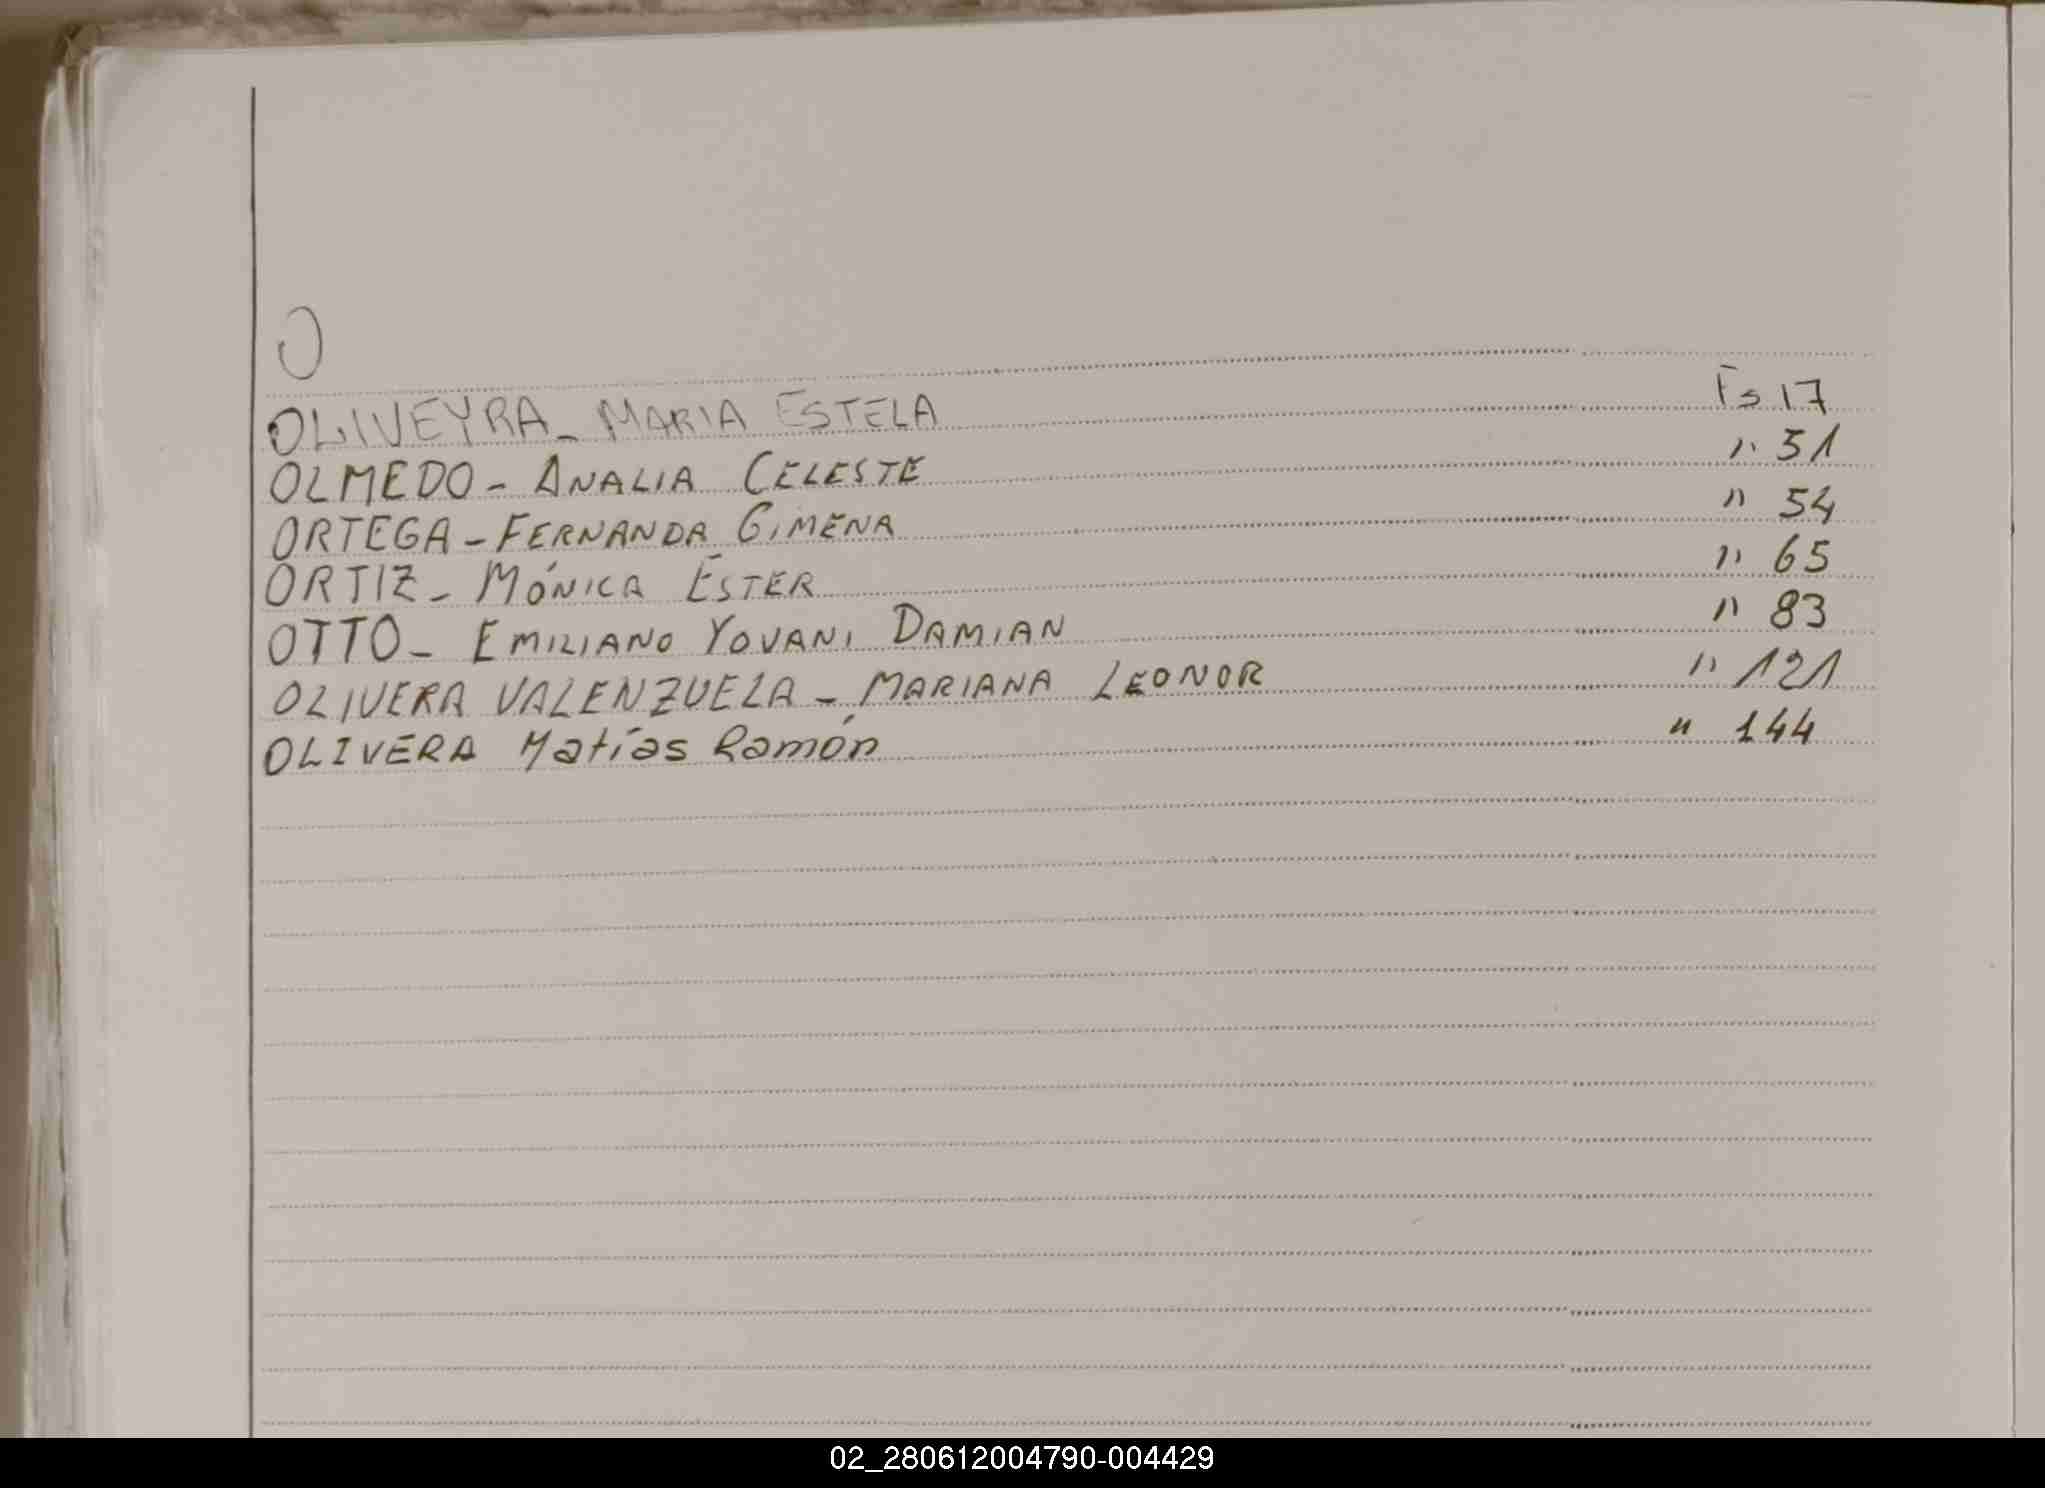 O
OLIVEYRA - MARIA ESTELA Fs 17
OLMEDO - ANALIA CELESTE " 51
ORTEGA - FERNANDA GIMENA " 54
ORTIZ - MÓNICA ESTER " 65
OTTO - EMILIANO YOVANI DAMIAN " 83
OLIVERA VALENZUELA - MARIANA LEONOR " 121
OLIVERA Matías Ramón " 144
02_280612004790-004429